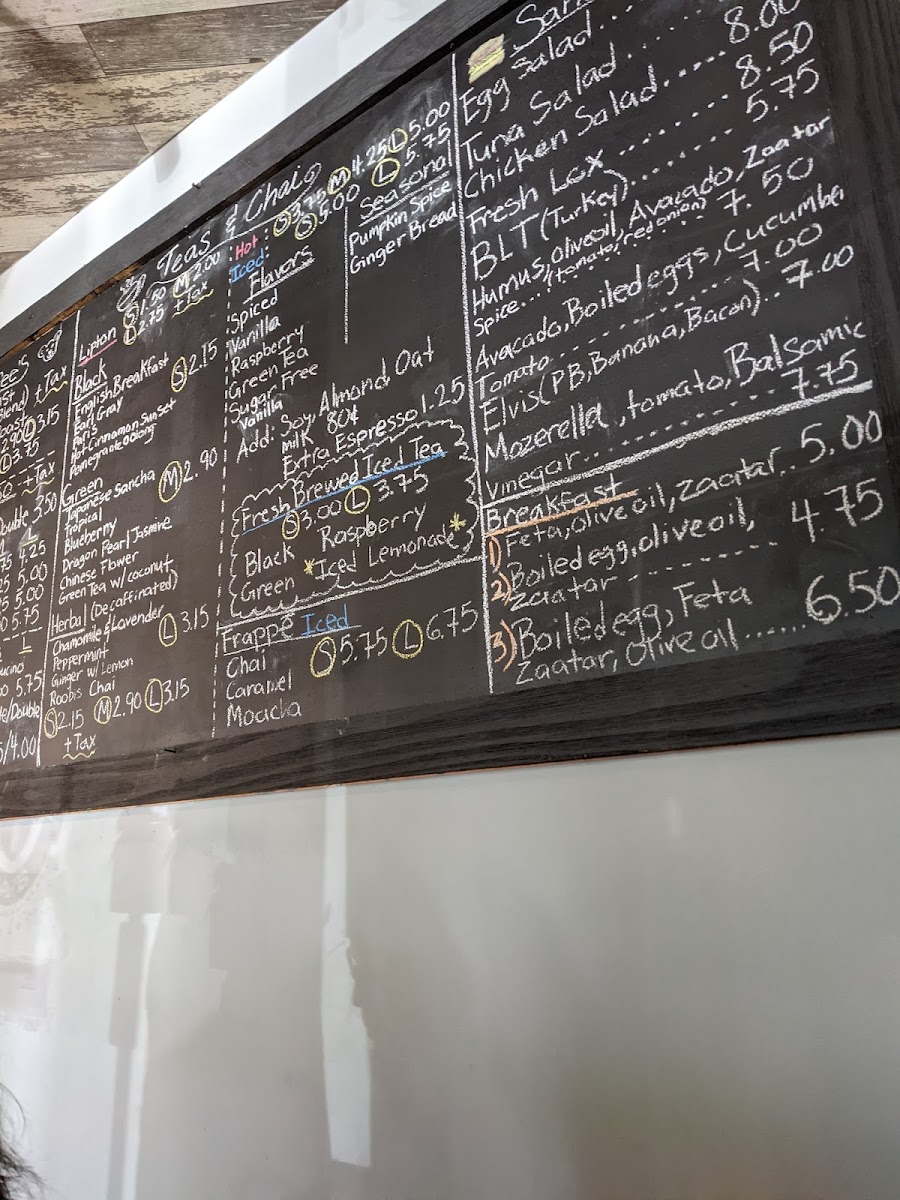 + Tax
3.15
3.75
+Tax
Double 3.50
L
4.25
5.00
5.00
5.75
5.75
/Double
/4.00
Teas & Chais
Lipton S 1.50 M 2.00
L 2.75 + Tax
Black
English Breakfast S 2.15
Earl Gray
Paris
Hot Cinnamon Sunset
Pomegranate Oolong
Green
Japanese Sancha M 2.90
Tropical
Blueberry
Dragon Pearl Jasmine
Chinese Flower
Green Tea w/ coconut
Herbal (Decaffinated)
Chamomile & Lavender L 3.15
Peppermint
Ginger w/ Lemon
Roobis Chai
S 2.15 M 2.90 L 3.15
+Tax
Hot: S 3.75 M 4.25 L 5.00
Iced: S 5.00 L 5.75
Flavors
Spiced
Vanilla
Raspberry
Green Tea
Sugar Free
Vanilla
Seasonal
Pumpkin Spice
Ginger Bread
Add: Soy, Almond Oat
milk 80¢
Extra Espresso 1.25
Fresh Brewed Iced Tea
S 3.00 L 3.75
Black Raspberry
Green *Iced Lemonade*
Frappé Iced
Chai S 5.75 L 6.75
Caramel
Moacha
Egg Salad...
Tuna Salad......
Chicken Salad..... 8.00
Fresh Lox......... 8.50
BLT (Turkey)........ 5.75
Humus, olive oil, Avacado, Zaatar
Spice... (tomato, red onion) 7.50
Avacado, Boiled eggs, Cucumber
Tomato............ 7.00
Elvis (PB, Banana, Bacon).. 7.00
Mozerella, tomato, Balsamic
Vinegar............ 7.75
Breakfast
1) Feta, olive oil, Zaatar.. 5.00
2) Boiled egg, olive oil,
Zaatar --------- 4.75
3) Boiled egg, Feta
Zaatar, Olive oil...... 6.50